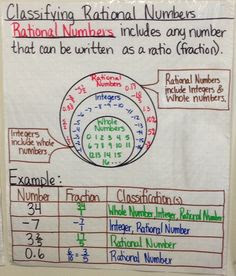 Classifying Rational Numbers
Rational Numbers includes any number
that can be written as a ratio (fraction).
Rational
Numbers
Integers
Whole
Numbers
0 1 2 3 4 5
6 7 8 9 10 11
12 13 14 15
16 ...
Rational Numbers
include Integers &
Whole numbers.
Integers
include whole
numbers.
Example:
Number Fraction Classification(s)
34 34/1 Whole Number, Integer, Rational Number
-7 -7/1 Integer, Rational Number
Rational Number
0.6 6/10 = 3/5 Rational Number